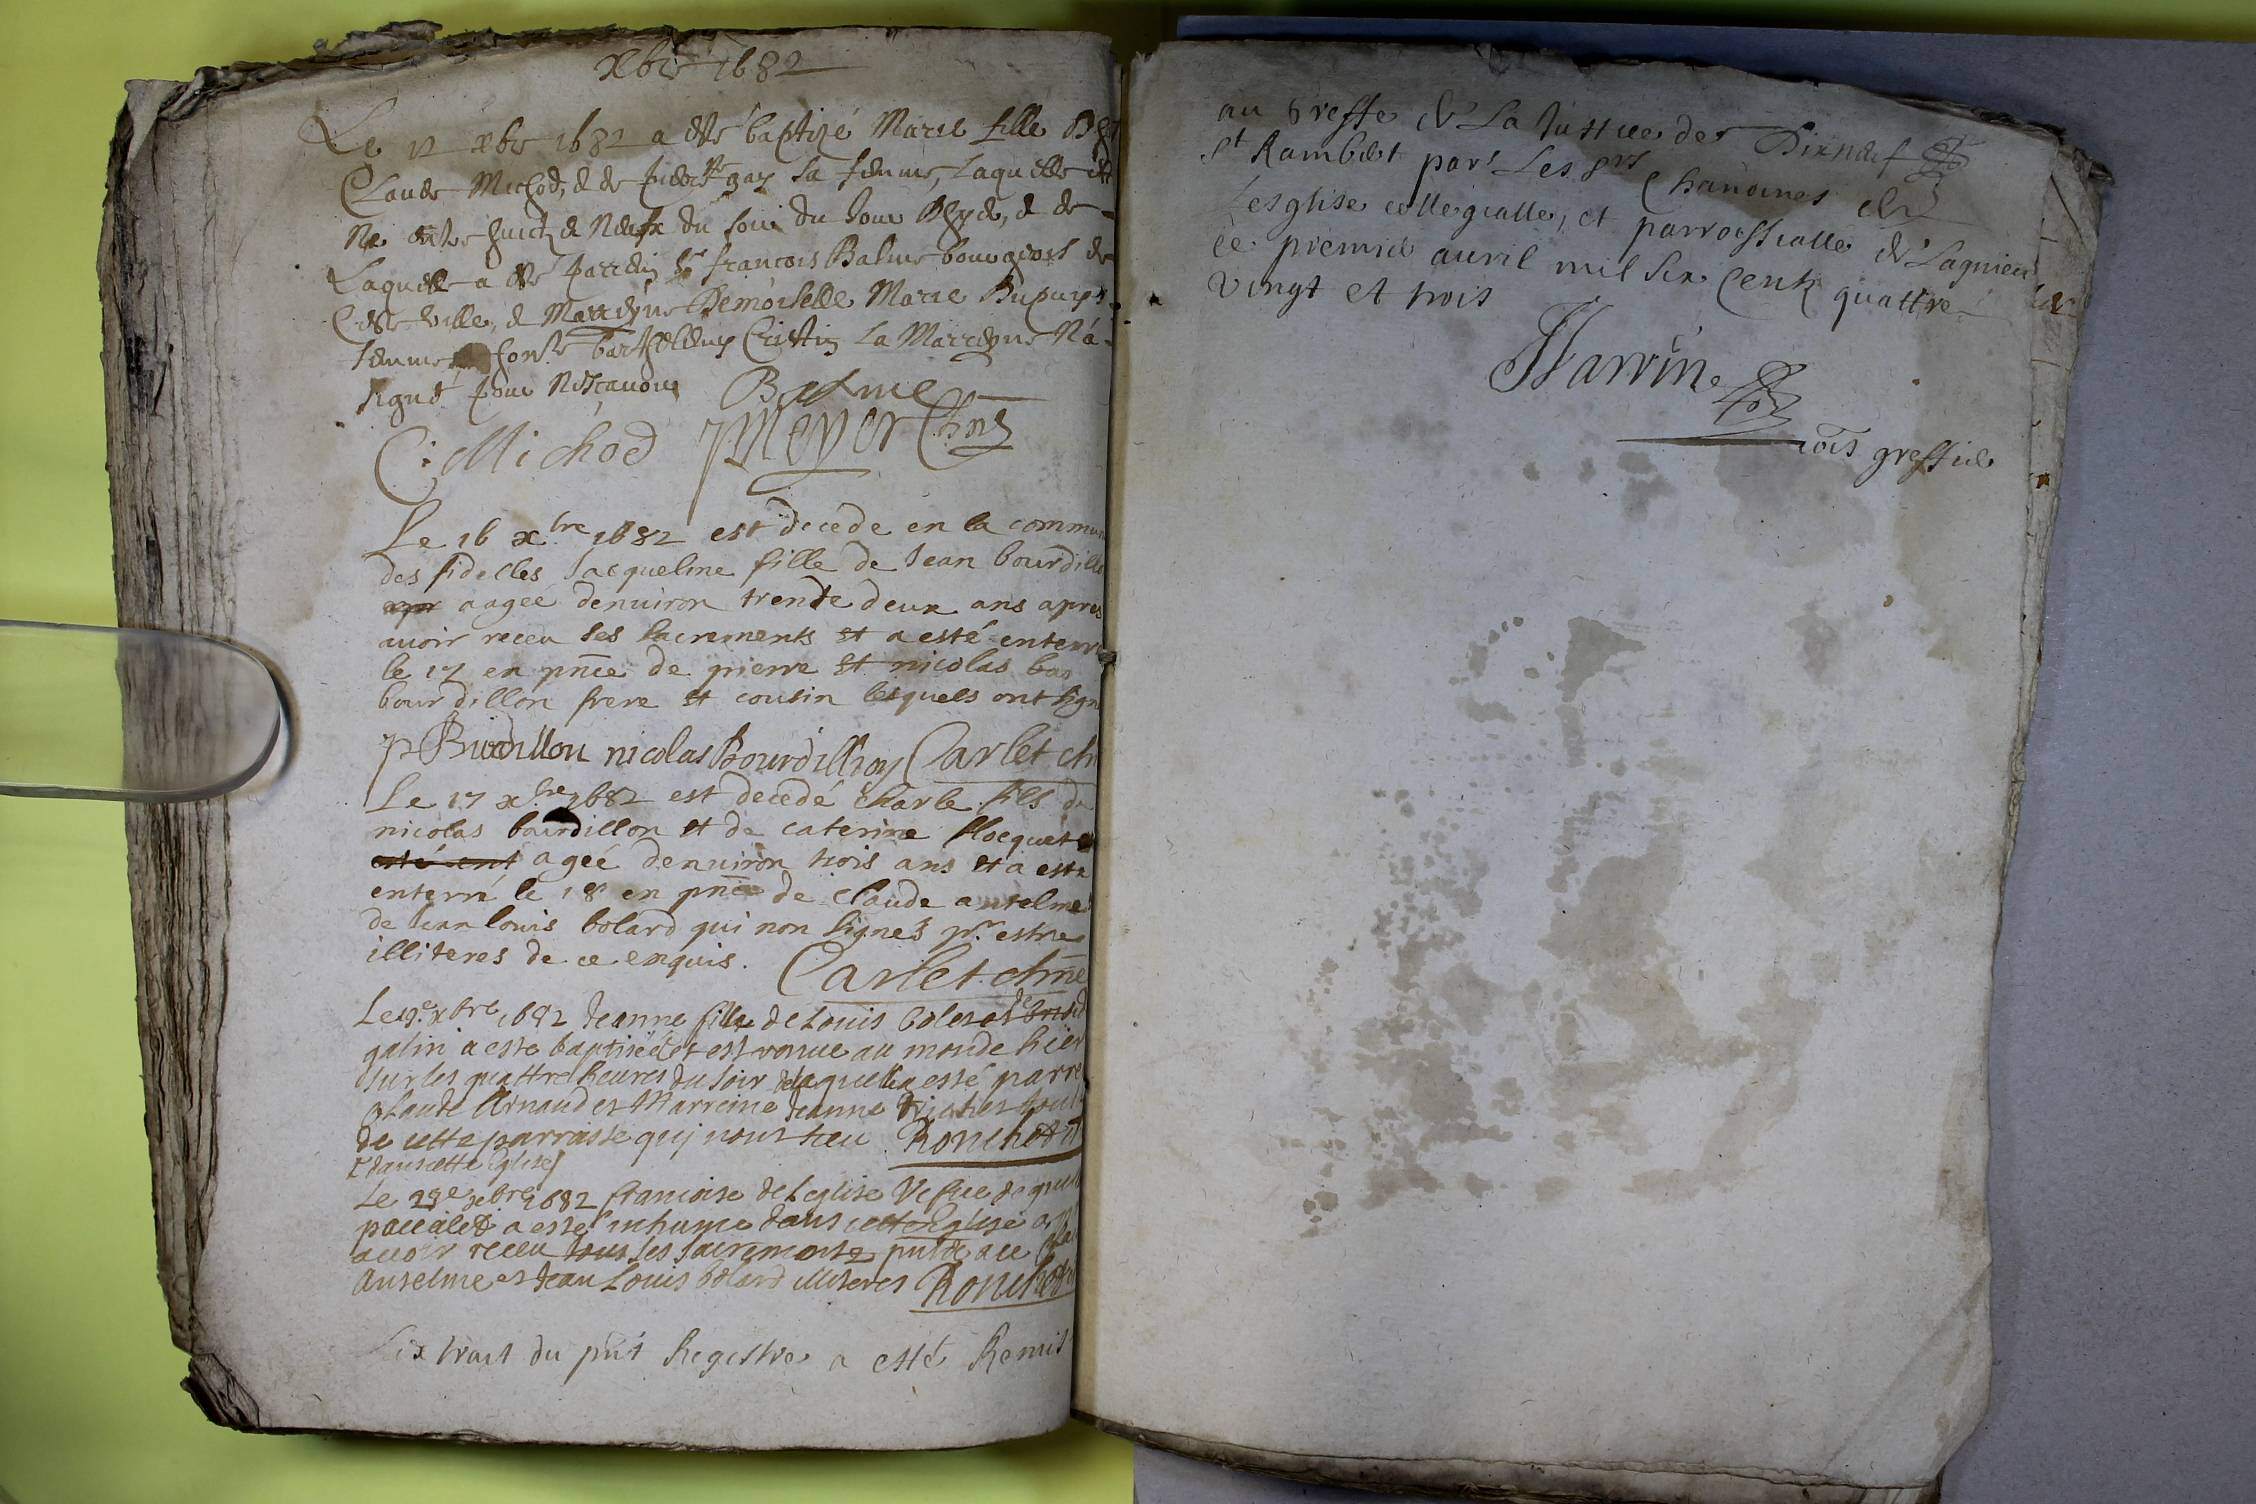 xbre 1682
Le 12 xbre 1682 a esté baptizé Marie fille de
Claude Michod, & de gay sa femme, laquelle est
Née entre huict & Neufz du soir du jour d'hyer, & de
Laquelle a esté parrein Sr francois Balme bourgeois de
Ceste ville, & Marreyne Demoiselle Marie Dupuys
femme barthellemy Cristin La Marreyne Na
signé pour ne sçavoir Balme
C: Michod Meyer Chne
Le 16 xbre 1682 est decede en la commun
des fidelles Jacqueline fille de Jean bourdill
aagee denuiron trente deux ans apres
auoir receu ses sacrements et a esté enterr
le 17 en pnce de pierre et nicolas
bourdillon frere et cousin lesquels ont sign
p Burdillon nicolas Bourdillion Carlet ch
Le 17 xbre 1682 est decedé charle fils de
nicolas bourdillon et de caterine Hocquet
esté ent ageé denuiron trois ans et a esté
enterré le 18 en pnce de Claude anselme
de Jean louis bolard qui non signez pr. estre
illiteres de ce enquis. Carlet. chne
Le xbre 1682 Jeanne fille de Louis
galin a este baptisée et est venue au monde hier
sur les quattre heures du soir de laquelle a esté parre
Claude Arnaud et Marreine Jeanne
de cette parroisse
dans cette Eglise
Le xbre 1682 francoise de Leglise Vefue de
a esté inhumé dans cette Eglise
auoir receu tous ses sacremonts
Anselme et Jean Louis bolard illiteres
Extrait du pnt Registre a esté Remis
au Greffe de La Justice de
St Rambert par Les Srs Chanoines de
Lesglise collegialle, et parroissialle de Lagnieu
ce premier auril mil six Cents quattre
vingt et trois
Warrin
greffier